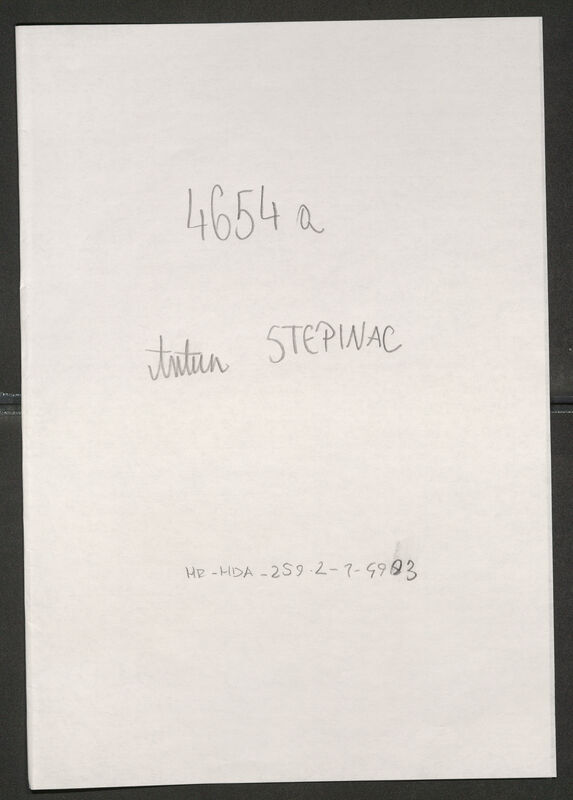 4654 a
Antun STEPINAC
HR-HDA-259-2-1-4983